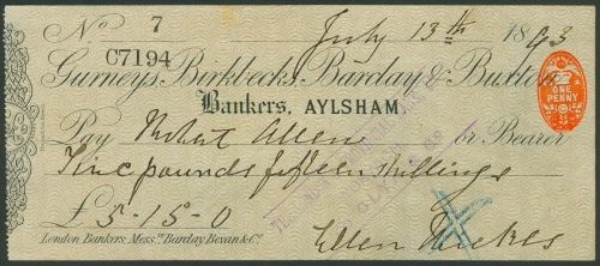 No 7 July 13th 1893
C7194
Gurneys, Birkbecks, Barclay & Buxton
Bankers, AYLSHAM.
Pay Robert Allen or Bearer
Five pounds fifteen shillings
£5-15-0
London Bankers, Messrs Barclay Bevan & Co.
Ellen
ONE
PENNY